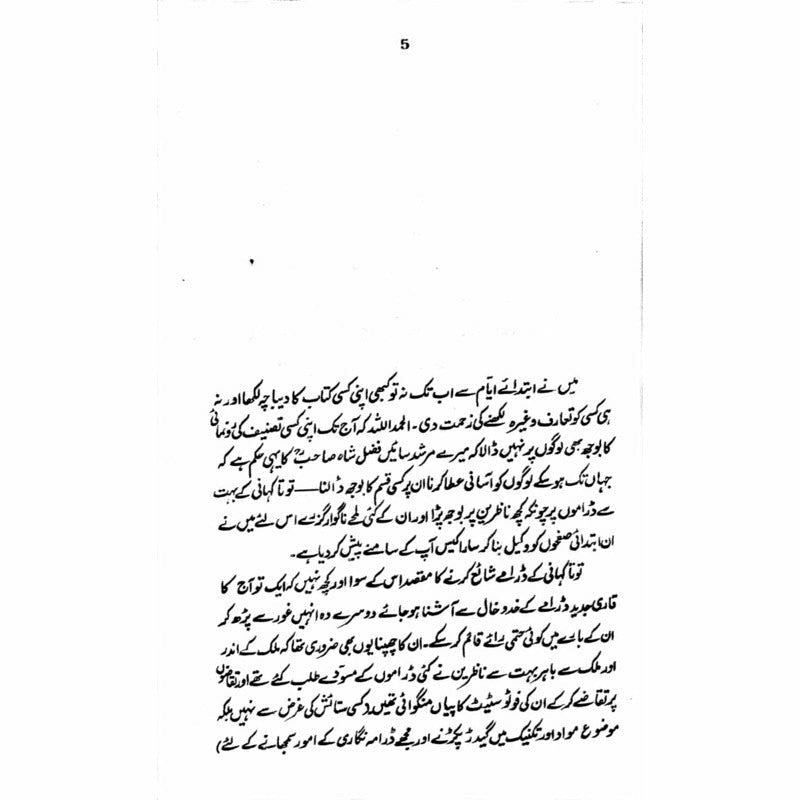 5
میں نے ابتدائے ایّام سے اب تک نہ تو کبھی اپنی کسی کتاب کا دیباچہ لکھا اور نہ
ہی کسی کو تعارف وغیرہ لکھنے کی زحمت دی۔ الحمداللہ کہ آج تک اپنی کسی تصنیف کی رونمائی
کا بوجھ بھی لوگوں پر نہیں ڈالا کہ میرے مرشد سائیں فضل شاہ صاحبؒ کا یہی حکم ہے کہ
جہاں تک ہو سکے لوگوں کو آسانی عطا کرنا ان پر کسی قسم کا بوجھ نہ ڈالنا — توتا کہانی کے بہت
سے ڈراموں پر چونکہ کچھ ناظرین پر بوجھ پڑا اور ان کے کئی لمحے ناگوار گزرے اس لئے میں نے
ان ابتدائی صفحوں کو وکیل بنا کر سارا کیس آپ کے سامنے پیش کر دیا ہے۔
توتا کہانی کے ڈرامے شائع کرنے کا مقصد اس کے سوا اور کچھ نہیں کہ ایک تو آج کا
قاری جدید ڈرامے کے خدوخال سے آشنا ہو جائے دوسرے وہ انہیں غور سے پڑھ کر
ان کے بارے میں کوئی حتمی رائے قائم کر سکے۔ ان کا چھپنا یوں بھی ضروری تھا کہ ملک کے اندر
اور ملک سے باہر بہت سے ناظرین نے کئی ڈراموں کے مسوّدے طلب کئے تھے اور تقاضوں
پر تقاضے کر کے ان کی فوٹو سٹیٹ کاپیاں منگوائی تھیں (کسی ستائش کی غرض سے نہیں بلکہ
موضوع مواد اور تکنیک میں گیدڑ پکڑنے اور مجھے ڈرامہ نگاری کے امور سمجھانے کے لئے)